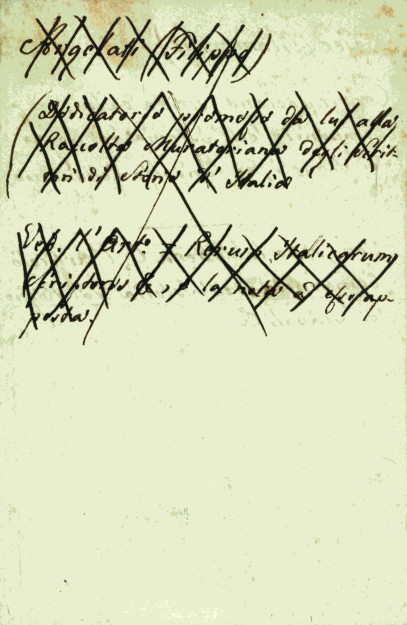 Argelati (Filippo)
(Dedicatorie premesse da lui alla
Raccolta Muratoriana degli Scrit-
tori di Storia d'Italia
Ved. l'Art.o Rerum Italicarum
Scriptores &, e la nota ad esso ap-
posta.